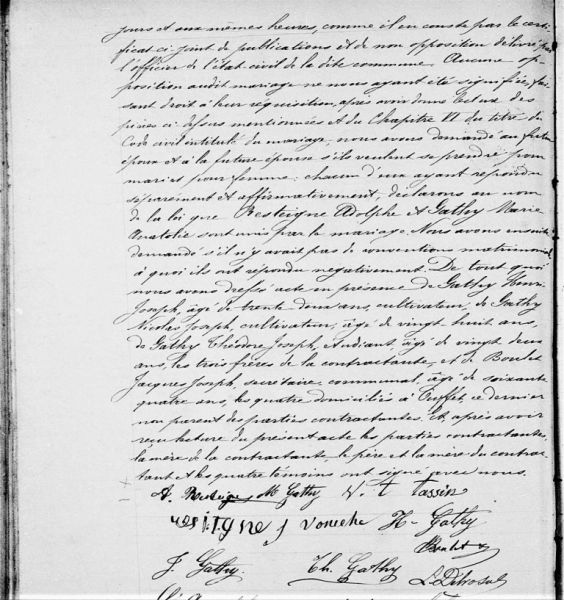 jours et aux mêmes heures, comme il en conste par le certi-
ficat ci-joint de publications et de non opposition délivré par
l'officier de l'état civil de la dite commune. Aucune op-
position audit mariage ne nous ayant été signifiée, fai-
sant droit à leur réquisition, après avoir donné lecture des
pièces ci-dessus mentionnées et du Chapitre VI du titre du
Code civil intitulé du mariage, nous avons demandé au futur
époux et à la future épouse s'ils veulent se prendre pour
mari et pour femme: chacun d'eux ayant répondu
séparément et affirmativement, déclarons au nom
de la loi que Resteigne Adolphe et Gathy Marie
Anatolie sont unis par le mariage. Nous avons ensuite
demandé s'il n'y avait pas de conventions matrimoniales
à quoi ils ont répondu négativement. De tout quoi
nous avons dressé acte en présence de Gathy Henri
Joseph, âgé de trente deux ans, cultivateur, de Gathy
Nicolas Joseph, cultivateur, âgé de vingt huit ans,
de Gathy Théodore Joseph, étudiant, âgé de vingt deux
ans, les trois frères de la contractante, et de Boulet
Jacques Joseph, secrétaire communal, âgé de soixante
quatre ans, les quatre domiciliés à Buffet ce dernier
non parent des parties contractantes. Et, après avoir
reçu lecture du présent acte les parties contractantes,
la mère de la contractante, le père et la mère du contrac-
tant et les quatre témoins ont signé avec nous.
A. Resteigne M Gathy V. t tassin
resteigne j voneche H. Gathy
Boulet
J Gathy. Th. Gathy